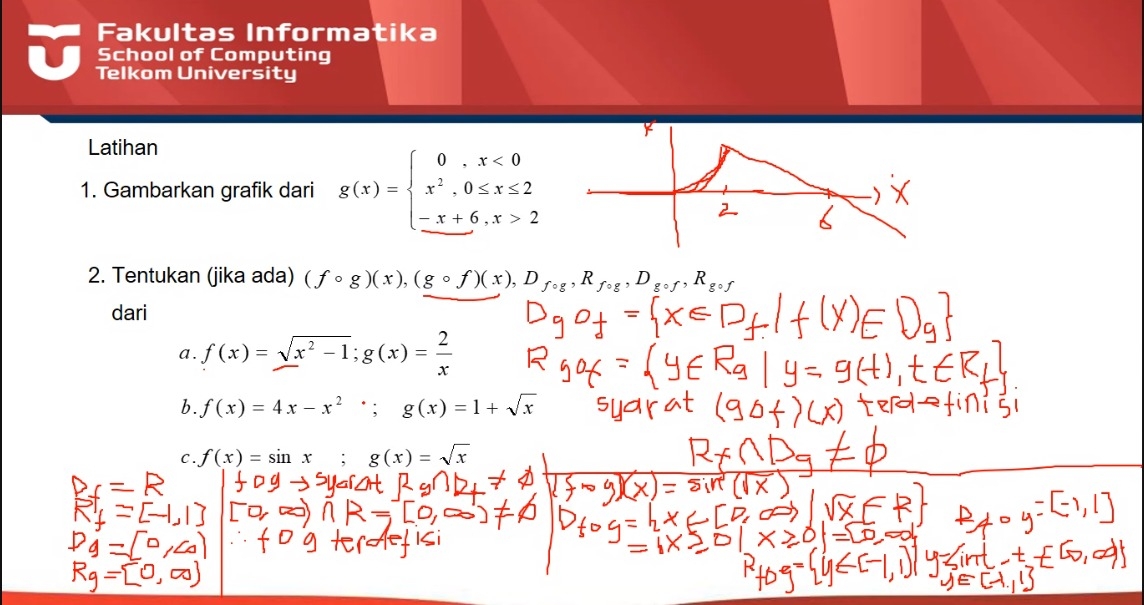 Fakultas Informatika
School of Computing
Telkom University
Latihan
1. Gambarkan grafik dari g(x) = { 0 , x < 0
x² , 0 ≤ x ≤ 2
− x + 6 , x > 2
X
2
6
2. Tentukan (jika ada) (f ∘ g)(x), (g ∘ f)(x), D f∘g , R f∘g , D g∘f , R g∘f
dari
a. f(x) = √(x² − 1) ; g(x) = 2/x
b. f(x) = 4x − x² ; g(x) = 1 + √x
c. f(x) = sin x ; g(x) = √x
D gof = {x ∈ Df / f(x) ∈ Dg}
R gof = {y ∈ Rg | y = g(t), t ∈ Rf}
syarat (gof)(x) terdefinisi
Rf ∩ Dg ≠ ϕ
Df = R
Rf = [-1,1]
Dg = [0,∞)
Rg = [0,∞)
fog → syarat Rg ∩ Df ≠ ϕ
[0,∞) ∩ R = [0,∞) ≠ ϕ
∴ fog terdefisi
(fog)(x) = sin(√x)
Dfog = {x ∈ [0,∞) | √x ∈ R}
= {x ≥ 0 | x ≥ 0} = [0,∞)
Rfog = {y ∈ [-1,1] | y = sin t, t ∈ [0,∞)}
y ∈ [-1,1]
Rfog = [-1,1]